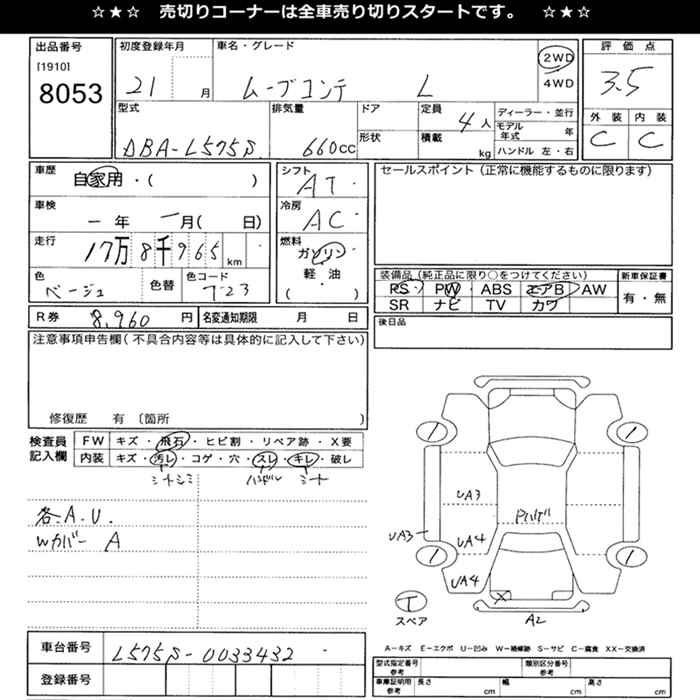 ☆★☆ 売切りコーナーは全車売り切りスタートです。 ☆★☆
出品番号
[1910]
8053
初度登録年月
21 月
車名・グレード
ムーブコンテ L
2WD
4WD
評価点
3.5
外装 内装
C C
型式
DBA-L575S
排気量
660cc
ドア
形状
定員
4人
積載
kg
ディーラー・並行
モデル年式 年
ハンドル 左・右
車歴
自家用・( )
車検
一年 一月(日)
走行
17万8千965km
色
ベージュ
色替
色コード
T23
シフト
AT
冷房
AC
燃料
ガソリン
軽油
( ・ )
セールスポイント(正常に機能するものに限ります)
装備品(純正品に限り○をつけてください)
PS PW ABS エアB AW
SR ナビ TV カワ
新車保証書
有・無
R券 8,960円
名変通知期限 月 日
後日品
注意事項申告欄(不具合内容等は具体的に記入して下さい)
修復歴 有〔箇所 〕
検査員記入欄
FW キズ・飛石・ヒビ割・リペア跡・X要
内装 キズ・汚レ・コゲ・穴・スレ・キレ・破レ
シートシミ ハンドル シート
各A.U.
Wカバー A
1 1
UA3
Pハゲ
UA3 UA4
1 1
UA4
X
T
スペア
A2
車台番号 L575S-0033432
登録番号
A－キズ E－エクボ U－凹み W－補修跡 S－サビ C－腐食 XX－交換済
型式指定番号 参考
類別区分番号 参考
車庫証明用 参考
長さ cm 幅 cm 高さ cm